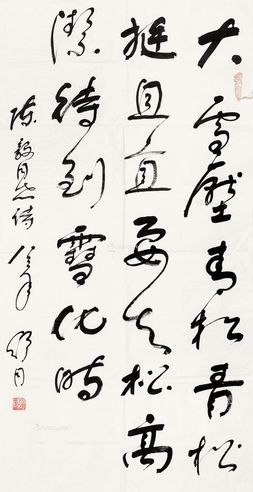 大雪壓青松青松
挺且直要知松高
潔待到雪化時
陳毅同志詩 舒同